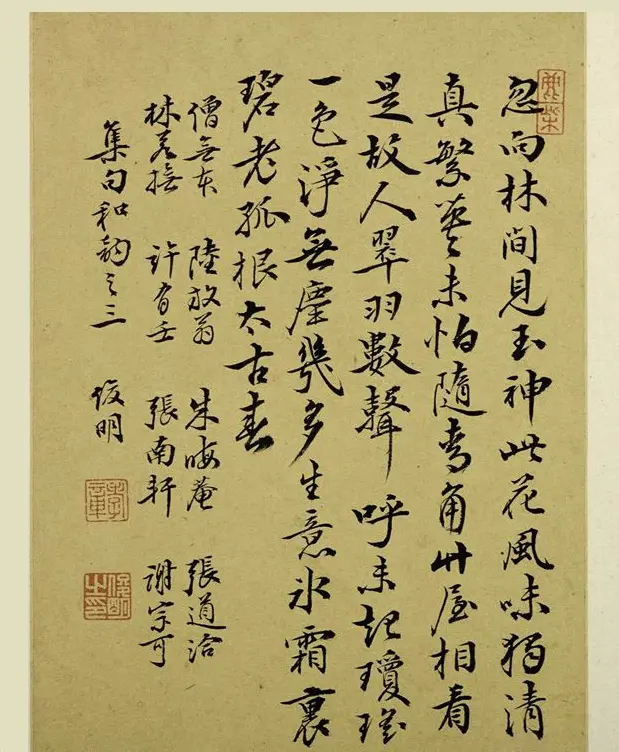 忽向林間見玉神此花風味獨清
真繁英未怕隨畫角艸屋相看
是故人翠羽數聲呼未起瓊瑤
一色淨無塵幾多生意冰霜裏
碧老孤根太古春
僧無本 陸放翁 朱晦菴 張道洽
林若撫 許有壬 張南軒 謝宗可
集句和韵之三 俊明
鹿柴